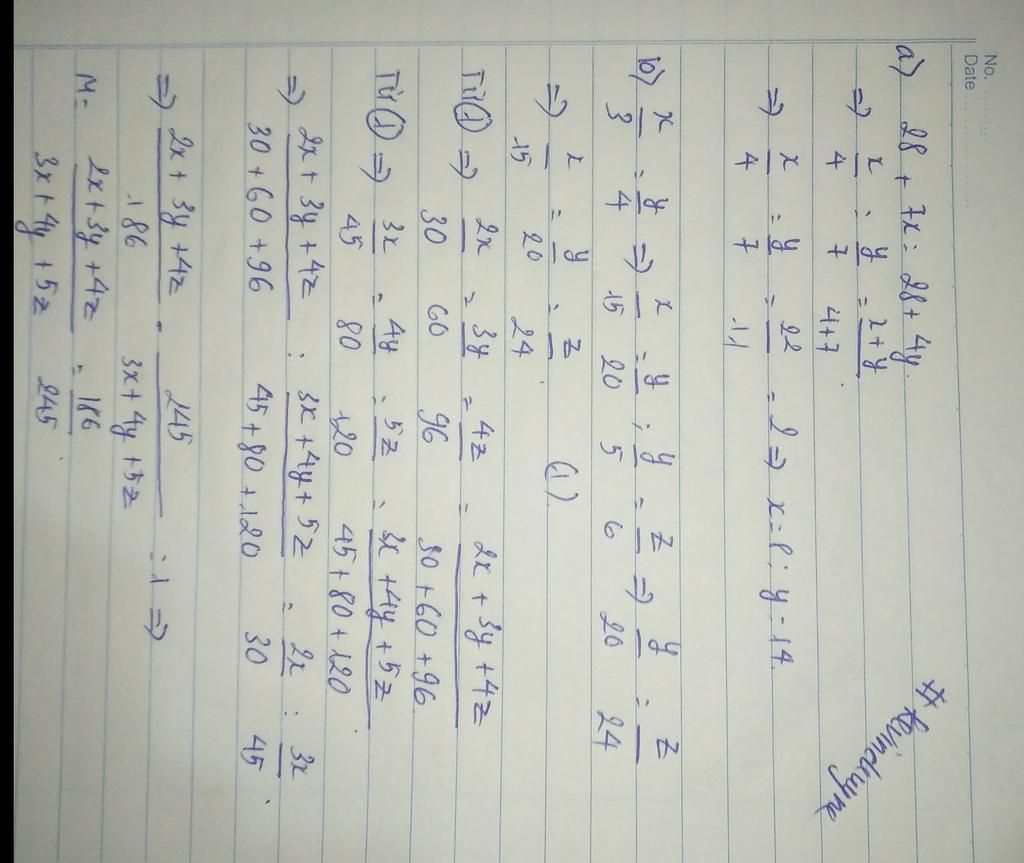 No.
Date
a) 28 + 7x = 28 + 4y
⇒ x/4 = y/7 = x+y/4+7
⇒ x/4 = y/7 = 22/11 = 2 ⇒ x = 8; y = 14
b) x/3 = y/4 ⇒ x/15 = y/20; y/5 = z/6 ⇒ y/20 = z/24
⇒ x/15 = y/20 = z/24 (1)
Từ (1) ⇒ 2x/30 = 3y/60 = 4z/96 = 2x + 3y + 4z/30 + 60 + 96
Từ (1) ⇒ 3x/45 = 4y/80 = 5z/120 = 3x + 4y + 5z/45 + 80 + 120
⇒ 2x + 3y + 4z/30 + 60 + 96 : 3x + 4y + 5z/45 + 80 + 120 = 2x/30 : 3x/45
⇒ 2x + 3y + 4z/186 . 245/3x + 4y + 5z = 1 ⇒
M = 2x + 3y + 4z/3x + 4y + 5z = 186/245